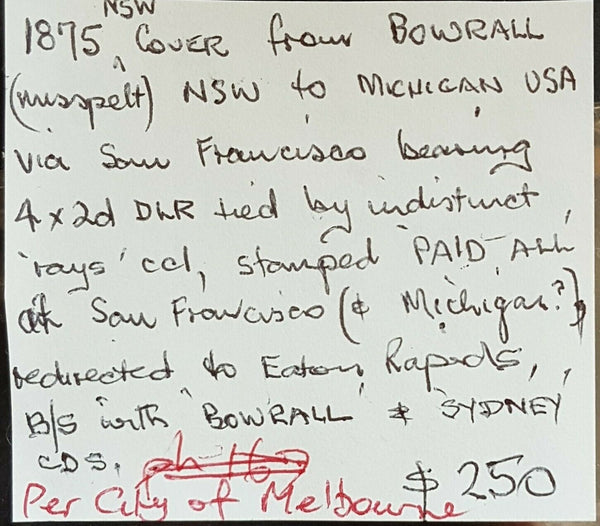 NSW
1875 ^ COVER from BOWRALL
(misspelt) NSW to MICHIGAN USA
via San Francisco bearing
4 x 2d DLR tied by indistinct
'rays' ccl, stamped 'PAID ALL'
at San Francisco (& Michigan?)
redirected to Eaton Rapids,
B/S with 'BOWRALL' & 'SYDNEY'
CDS.
Per City of Melbourne $250